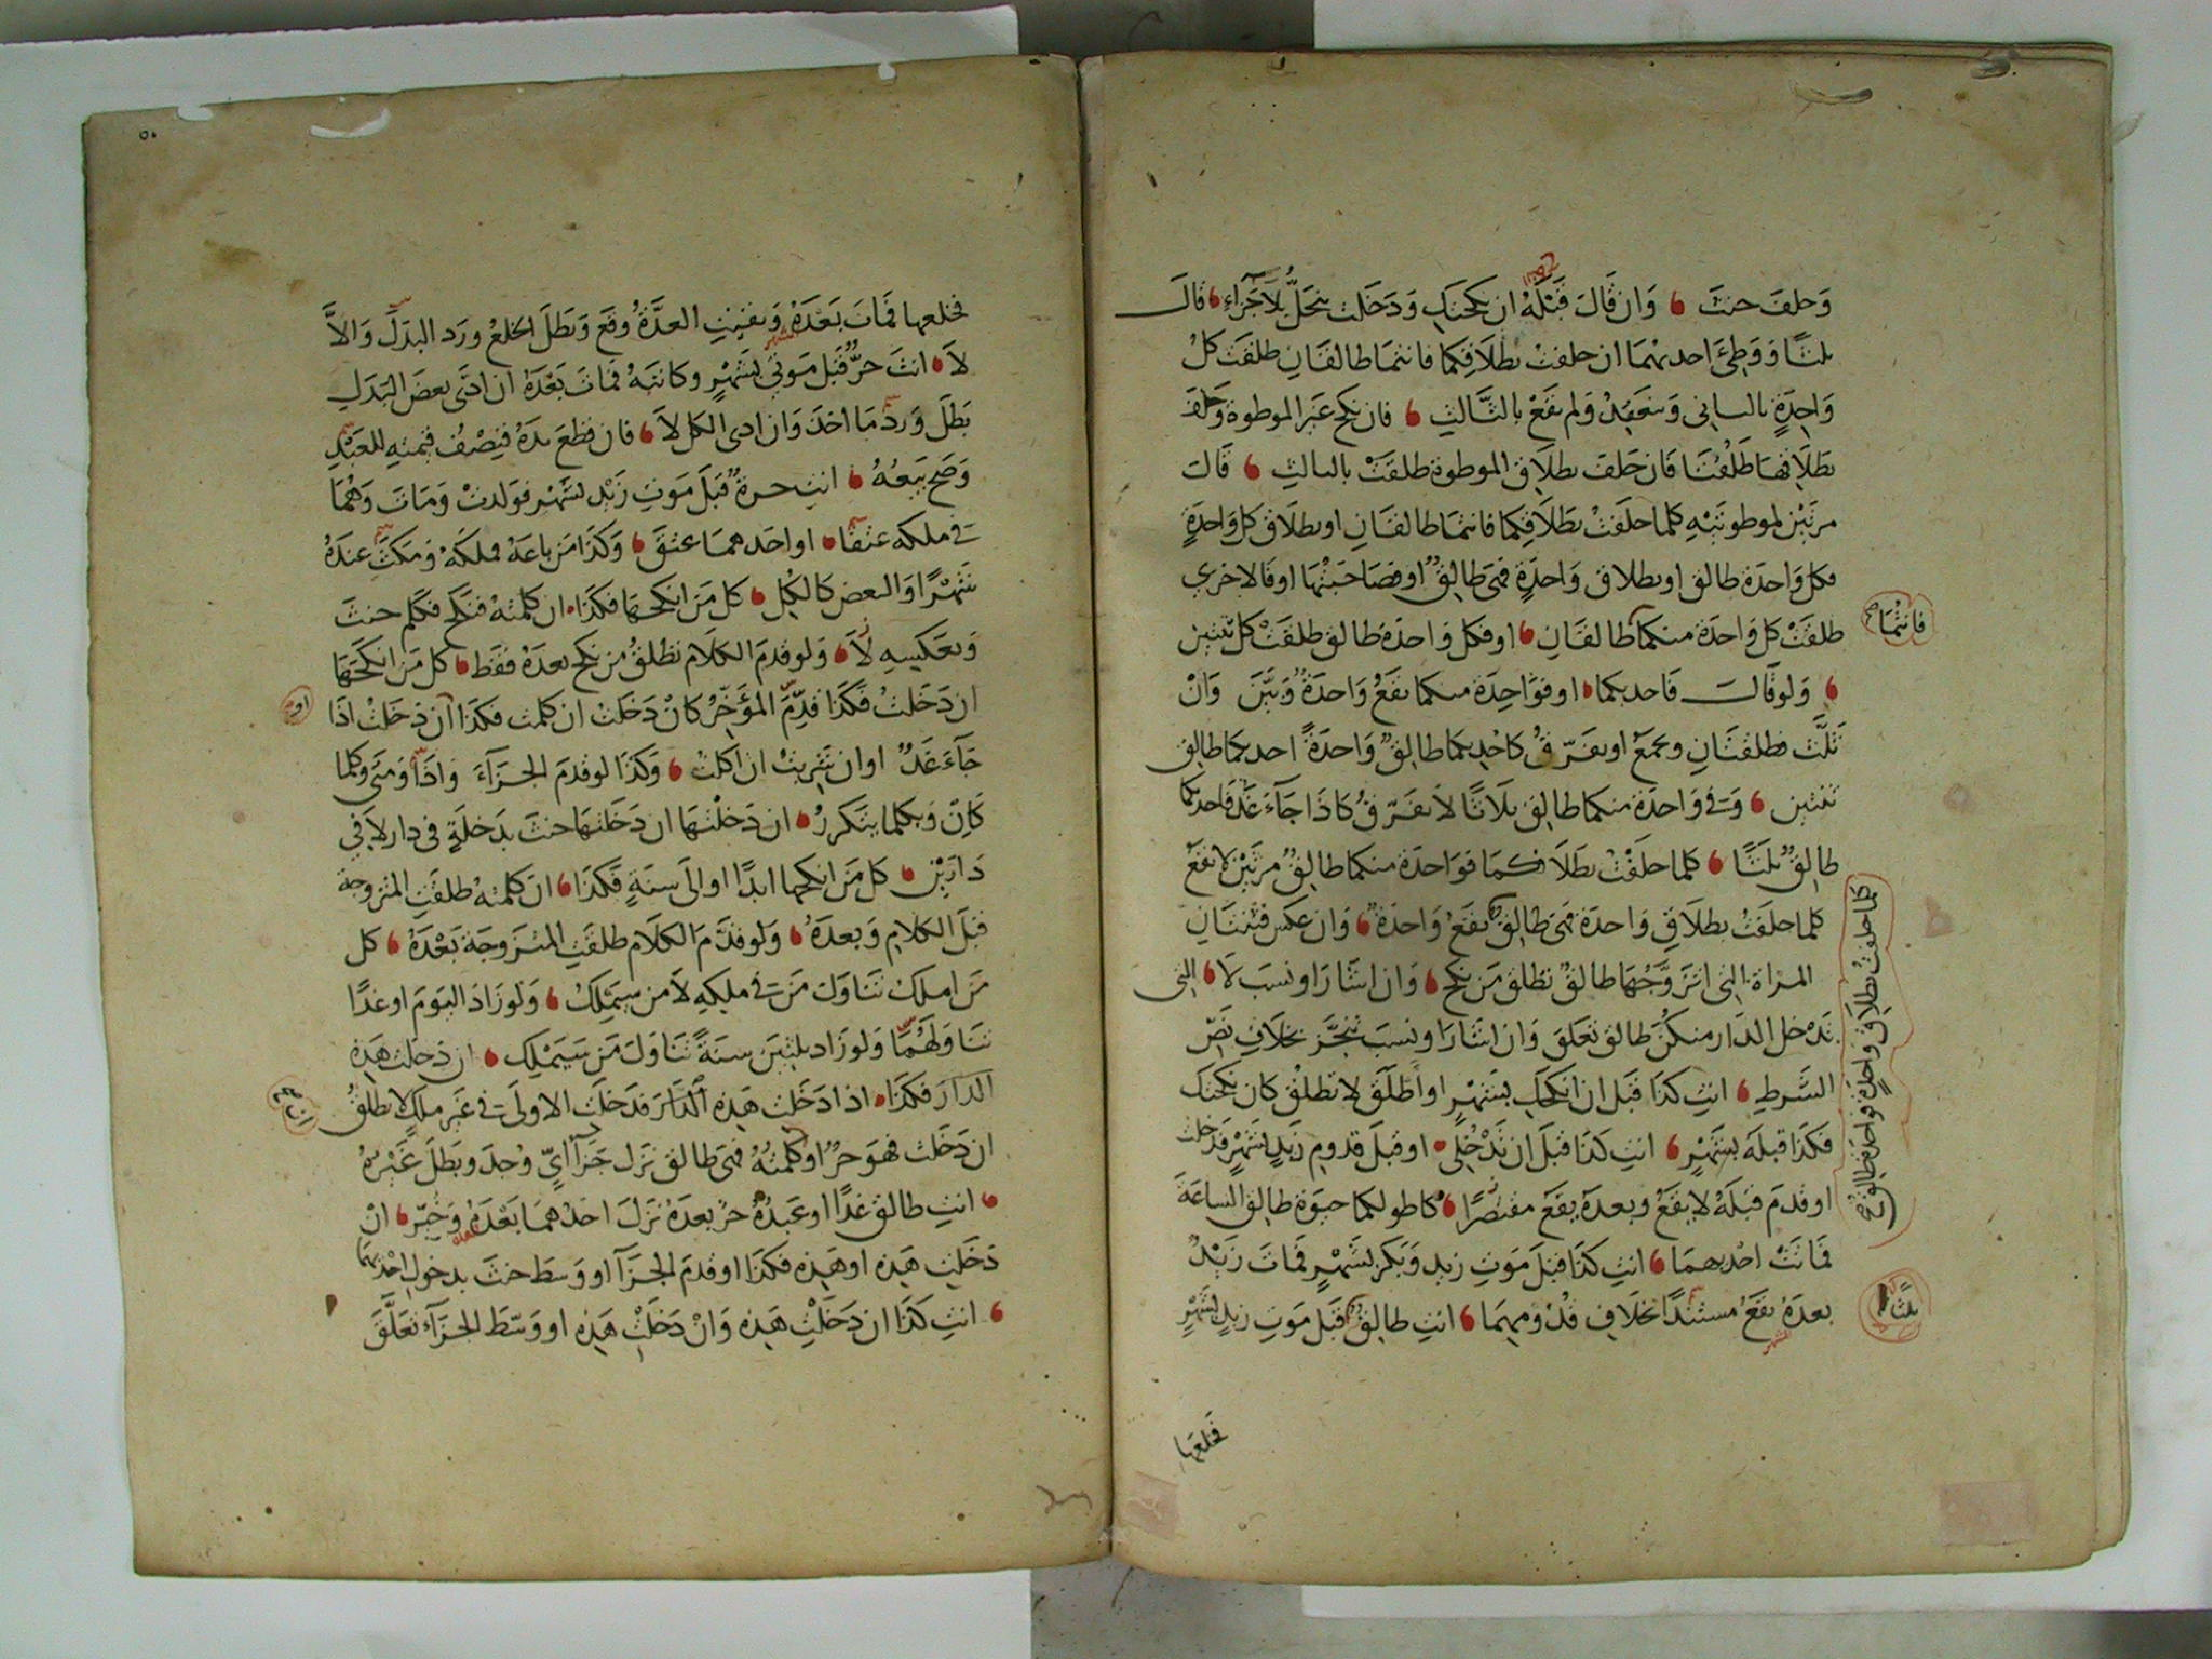 وَحلفَ حنثَ وَان قَالَ قَبْلَهُ ان نكحتكِ وَدَخَلت ينحَلُّ بِلاَ جَزاءٍ قَالَ
ثلثًا وَوَطِئَ احديهمَا ان حلفتُ بطلاَقِكما فانتمَا طالقَانِ طلقَت كلُ
وَاحِدَةٍ بالثاني وَينعَقِدُ وَلم يقَعْ بالثَّالثِ فان نكح غيَر الموطوة وَحَلَفَ
بطَلاَقهمَا طَلُقتَا فَان حَلفَ بطلاَقِ الموطوةِ طلقَتْ بالثالثِ قَالَ
مرتَيْنِ لموطوتَيْهِ كلما حلَفتُ بطَلاَقِكما فانتمَا طالقَانِ او بطلاَقِ كل وَاحدَةٍ
فكل وَاحدَة طالق او بطلاق وَاحدَةٍ فهىَ طَالِقٌ او فصَاحبَتُهَا او قالاخرى
طلقَتْ كل وَاحدَة منكما طَالقَانِ او فكل وَاحدَة طالق طلقَتْ كل ثنتين
فانتُمَا صح
وَلو قَالَ فَاحديكما او فوَاحِدَة منكما يقَعُ وَاحدَةٌ وَبَيَّنَ وَانْ
ثَلَّث فطلقتَانِ ويجمَعُ او يفَرّقُ كاحْديكمَا طالِقٌ وَاحدَةً احديكمَا طالِق
ثنتين وَفي وَاحدَة منكما طالِق ثلاَثًا لاَ يفَرّقُ كاذَا جَآءَ غَدٌ فَاحديكما
طالِقٌ ثلثًا كلما حلَفْتُ بطَلاَقكمَا فوَاحدَة منكما طالِقٌ مرتَيْن لا يقَعُ
كلما حلَفتُ بطلاَقِ وَاحدَة فهىَ طالِقٌ يقَعُ وَاحدَة وَان عكَس فثنتَانِ
كلما حلفتُ بطلاَقِ واحدَةٍ فواحدَة طالق صح
المرَاة التى اتزَوَّجُهَا طالقٌ تطلق مَن نكح وَان اشَارَ او نسَبَ لاَ التى
تَدخل الدَار منكنَّ طالق تعَلقَ وَان اشَارَ او نسَبَ تنجَّز بخلاَفِ نَصِّ
الشَّرطِ انتِ كذَا قَبل ان انكحَكِ بشَهْرٍ او اطَلِّقَ لا تطلُق كان نكحتك
فكَذَا قبلَه بشَهْرٍ انتِ كذَا قبلَ ان تَدْخُلِى او قبلَ قدومِ زَيدٍ بشَهْرٍ فدَخلت
او قدمَ قبْلَهُ لا يقَعُ وبعدَهُ يقَع مقتصَرًا كاطولكما حيوةً طالِق السَاعَةَ
فمَاتَتْ احْديهمَا انتِ كذَا قبلَ مَوتِ زيدٍ وَبَكرٍ بشَهْرٍ فمَاتَ زيْدٌ
بعدَهُ يقَعُ مستنَدًا بخلاَفِ قدُومِهِمَا انتِ طالِقٌ قَبل مَوتِ زيدٍ بشَهْرٍ
ثلثًا
الشهر
فخلعَها
٥٠
فخلعها فمَاتَ بَعْدَهُ وَبقيَتِ العدَّةُ وقَع وَبَطلَ الخلعُ ورَد البدَلَ وَالاَّ
لاَ انتَ حرٌّ قَبل مَوتي بشَهْرٍ وكاتبَهُ فمَاتَ بَعْدَهُ ان ادّى بعضَ البَدَلِ
الشهر
بَطَلَ وَردَّ مَا اخذَ وَان ادى الكل لاَ فان قطعَ يدَهُ فنِصْفُ قيمتِهِ للعَبْدِ
وَصَح بَيعُهُ انتِ حرة قَبلَ مَوتِ زَيْدٍ بشَهْرٍ فوَلدتْ وَمَاتَ وَهُمَا
فى ملكه عتقَا او احَدهمَا عتقَ وَكذَا مَن باعَهُ فملكَهُ وَمَكثَ عندَهُ
شَهْرًا وَالبعض كَالكُلِ كل مَن انكحهَا فكذَا ان كلمتهُ فنَكَح فكَلَّم حنثَ
وَبعَكسِهِ لاَ وَلو قدمَ الكلاَم تطلُقُ من نكح بعدَهُ فقَط كل مَن انكحَهَا
ان دَخَلتُ فكَذَا قدِّمَ المؤَخّرُ كان دَخَلتُ ان كلمت فكذَا ان دَخَلتُ اذَا
او
جَآءَ غَدٌ او ان شَرِبتُ ان اكلتُ وَكذَا لو قدمَ الجزَآءَ وَاذَا وَمَتى وكلما
كَاِنْ وَبكلما يتكررُ ان دَخلتُهَا ان دَخَلتُهَا حنثَ بدَخلَةٍ فى دار لاَ في
دَارَيْنِ كل مَن انكحها ابدًا او الىَ سنَةٍ فكذَا ان كلمتهُ طلقَتِ المتزوجة
قبلَ الكلاَمِ وَبعدَهُ وَلو قدَّمَ الكلاَم طلقَتِ المتزَوجَة بَعْدَهُ كل
مَن املكُ تنَاوَلَ مَن فى ملكِهِ لاَ من سيَملِكُ وَلو زَادَ اليَومَ او غدًا
تنَاوَلهُمَا وَلو زَاد ثلثينَ سنَةً تنَاوَلَ مَن سَيَمْلِك ان دخلت هَذهِ
الدارَ فكذَا اذا دَخَلت هَذِه الدَّارَ فدَخلَت الاولىَ فى غَير ملكٍ لا تطلُقُ
ان دَخَلت فهوَ حرٌ او كلمتُهُ فهىَ طالق نَزل جَزآءُ ايٍّ وُجدَ وبَطَلَ غَيْرُهُ
انتِ طالق غدًا او عَبدُهُ حرٌ بعدَهُ نَزَلَ احدُهمَا بَعْدَهُ وَخيِّرَ انْ
دَخَلتِ هَذِه او هَذِه فكَذَا او قدمَ الجزَآءَ او وَسَطَ حنثَ بدخولِ احْديهمَا
انتِ كذَا ان دَخَلتِ هَذِه وَانْ دَخَلتِ هَذِه او وَسّطَ الجزَآءَ تعلَّقَ